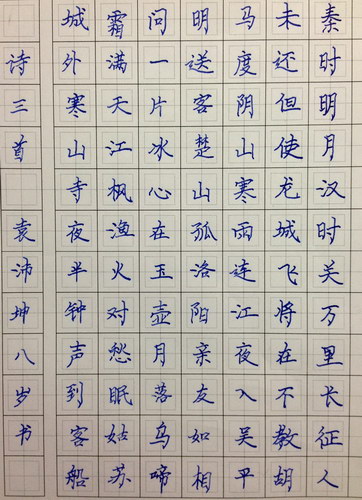 秦时明月汉时关万里长征人
未还但使龙城飞将在不教胡
马度阴山寒雨连江夜入吴平
明送客楚山孤洛阳亲友如相
问一片冰心在玉壶月落乌啼
霜满天江枫渔火对愁眠姑苏
城外寒山寺夜半钟声到客船
诗三首 袁沛坤八岁书